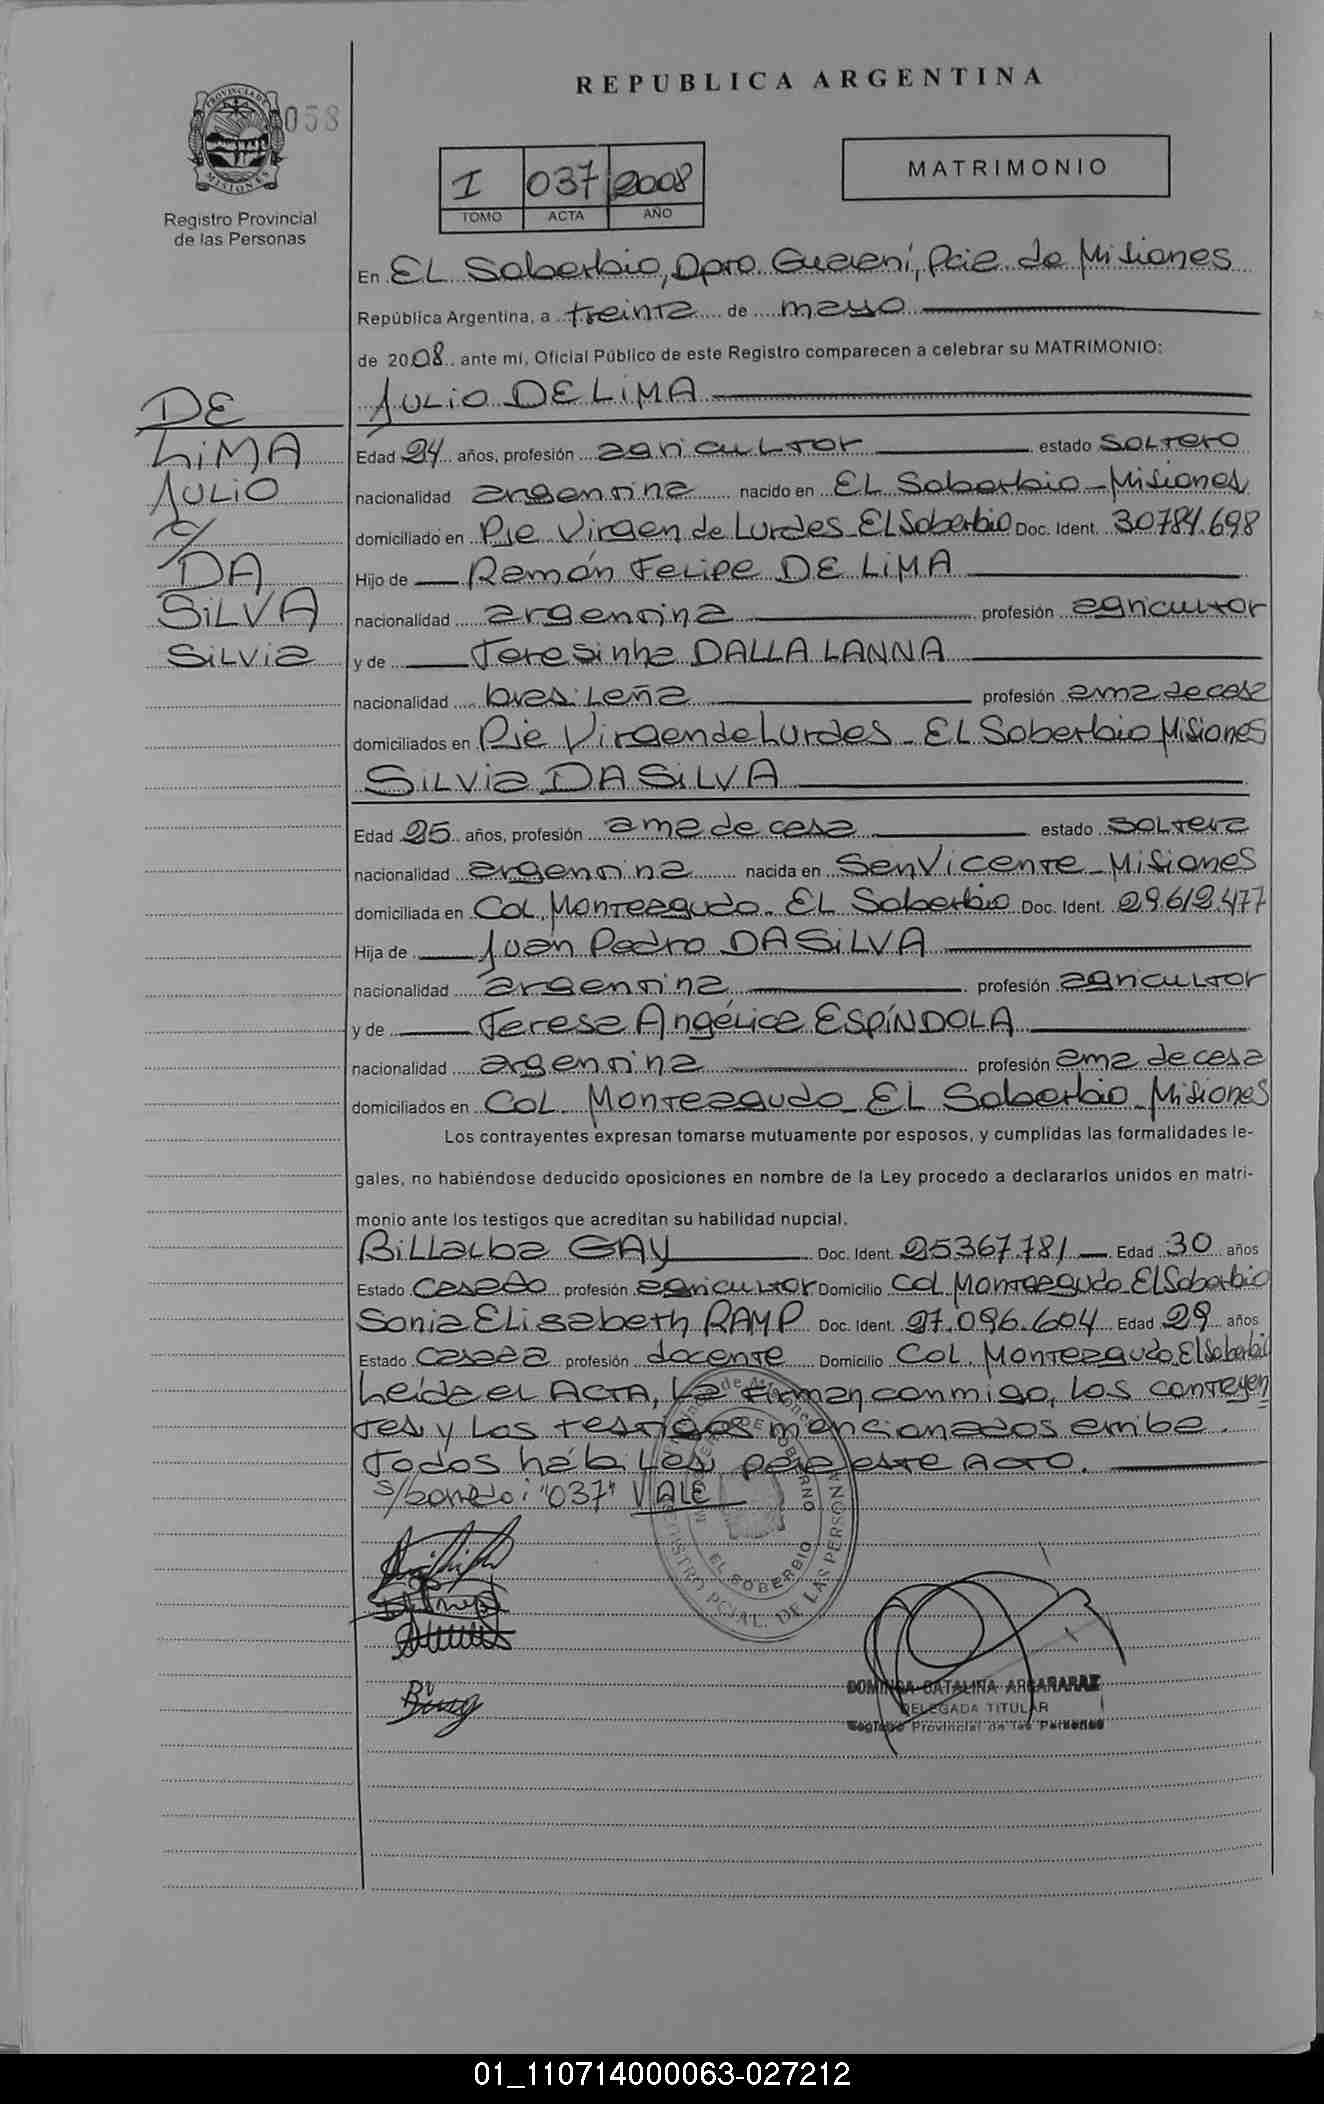 REPUBLICA ARGENTINA
PROVINCIA DE
MISIONES
058
Registro Provincial
de las Personas
I 037 2008
TOMO ACTA AÑO
MATRIMONIO
En EL Soberbio, Dpto. Guaraní, Pcia de Misiones
República Argentina, a treinta de mayo
de 2008 ante mi, Oficial Público de este Registro comparecen a celebrar su MATRIMONIO:
JULIO DE LIMA
DE
LIMA
JULIO
c/
DA
SILVA
Silvia
Edad 24 años, profesión agricultor estado soltero
nacionalidad argentina nacido en EL Soberbio - Misiones
domiciliado en Pje Virgen de Lurdes - El Soberbio Doc. Ident. 30784.698
Hijo de Ramón Felipe DE LIMA
nacionalidad argentina profesión agricultor
y de Teresinha DALLA LANNA
nacionalidad brasileña profesión ama de casa
domiciliados en Pje Virgen de Lurdes - EL Soberbio Misiones
Silvia DA SILVA
Edad 25 años, profesión ama de casa estado soltera
nacionalidad argentina nacida en San Vicente - Misiones
domiciliada en Col. Monteagudo - EL Soberbio Doc. Ident. 29.612.477
Hija de Juan Pedro DA SILVA
nacionalidad argentina profesión agricultor
y de Teresa Angélica ESPÍNDOLA
nacionalidad argentina profesión ama de casa
domiciliados en Col. Monteagudo - EL Soberbio - Misiones
Los contrayentes expresan tomarse mutuamente por esposos, y cumplidas las formalidades le-
gales, no habiéndose deducido oposiciones en nombre de la Ley procedo a declararlos unidos en matri-
monio ante los testigos que acreditan su habilidad nupcial.
Billalba GAY Doc. Ident. 25367.781 Edad 30 años
Estado casado profesión agricultor Domicilio Col Monteagudo El Soberbio
Sonia Elisabeth RAMP Doc. Ident. 27.096.604 Edad 29 años
Estado casada profesión docente Domicilio Col. Monteagudo El Soberbio
Leída el ACTA, la firman conmigo, los contrayen
tes y los testigos mencionados arriba.
Todos hábiles para este ACTO.
s/borrado: "037" VALE
EL SOBERBIO
REGISTRO PCIAL. DE LAS PERSONAS
DOMINGA CATALINA ARGARARAZ
DELEGADA TITULAR
Registro Provincial de las Personas
01_110714000063-027212